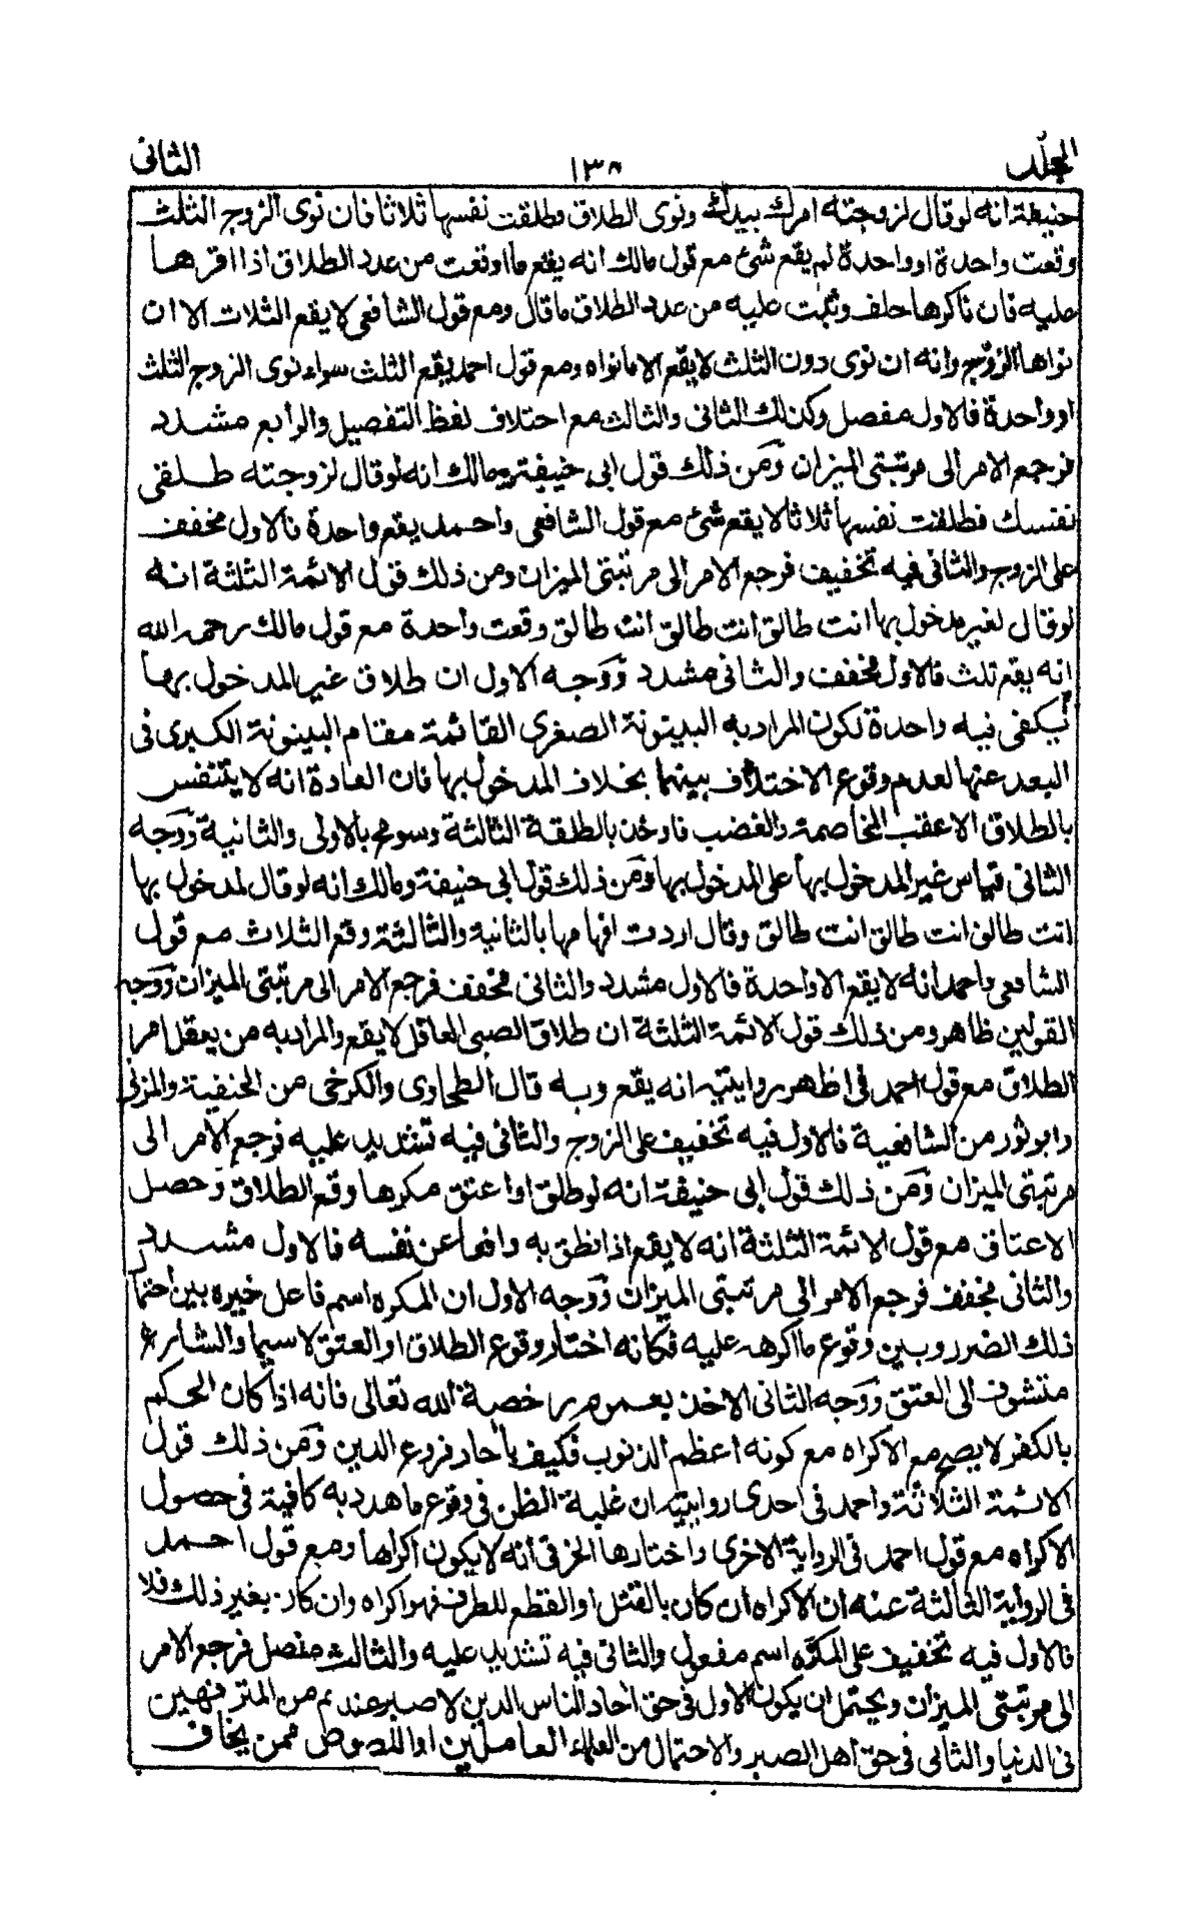 المجلد
١٣٨
الثاني
حنيفة انه لو قال لزوجته امرك بيدك ونوى الطلاق وطلقت نفسها ثلاثا فان نوى الزوج الثلث
وقعت واحدة او واحدة لم يقع شئ مع قول مالك انه يقع ما اوقعت من عدد الطلاق اذا اقرها
عليه فان ناكرها حلف وثبت عليه من عدد الطلاق ما قال ومع قول الشافعي لا يقع الثلاث الا ان
نواها الزوج وانه ان نوى دون الثلث لا يقع الا ما نواه ومع قول احمد يقع الثلث سواء نوى الزوج الثلث
او واحدة فالاول مفصل وكذلك الثاني والثالث مع اختلاف لفظ التفصيل والرابع مشدد
فرجع الامر الى مرتبتي الميزان ومن ذلك قول ابي حنيفة ومالك انه لو قال لزوجته طلقي
نفسك فطلقت نفسها ثلاثا لا يقع شئ مع قول الشافعي واحمد يقع واحدة فالاول مخفف
على الزوج والثاني فيه تخفيف فرجع الامر الى مرتبتي الميزان ومن ذلك قول الائمة الثلثة انه
لو قال لغير مدخول بها انت طالق انت طالق انت طالق وقعت واحدة مع قول مالك رحمه الله
انه يقع ثلث فالاول مخفف والثاني مشدد ووجه الاول ان طلاق غير المدخول بها
يكفى فيه واحدة لكون المراد به البينونة الصغرى القائمة مقام البينونة الكبرى في
البعد عنها لعدم وقوع الاختلاف بينهما بخلاف المدخول بها فان العادة انه لا يتنفس
بالطلاق الا عقب المخاصمة والغضب فاوخذ بالطلقة الثالثة وسومح بالاولى والثانية ووجه
الثاني قياس غير المدخول بها على المدخول بها ومن ذلك قول ابي حنيفة ومالك انه لو قال لمدخول بها
انت طالق انت طالق انت طالق وقال اردت افهامها بالثانية والثالثة وقع الثلاث مع قول
الشافعي واحمد انه لا يقع الا واحدة فالاول مشدد والثاني مخفف فرجع الامر الى مرتبتي الميزان ووجه
القولين ظاهر ومن ذلك قول الائمة الثلثة ان طلاق الصبي العاقل لا يقع والمراد به من يعقل امر
الطلاق مع قول احمد في اظهر روايتيه انه يقع وبه قال الطحاوى والكرخى من الحنفية والمزنى
وابو ثور من الشافعية فالاول فيه تخفيف على الزوج والثاني فيه تشديد عليه فرجع الامر الى
مرتبتي الميزان ومن ذلك قول ابي حنيفة انه لو طلق او اعتق مكرها وقع الطلاق وحصل
الاعتاق مع قول الائمة الثلثة انه لا يقع اذا نطق به دافعا عن نفسه فالاول مشدد
والثاني مخفف فرجع الامر الى مرتبتي الميزان ووجه الاول ان المكره اسم فاعل خيره بين احتمال
ذلك الضرر وبين وقوع ما اكرهه عليه فكانه اختار وقوع الطلاق او العتق لا سيما والشارع
متشوف الى العتق ووجه الثاني الاخذ بعموم رخصة الله تعالى فانه اذا كان الحكم
بالكفر لا يصح مع الاكراه مع كونه اعظم الذنوب فكيف بآحاد فروع الدين ومن ذلك قول
الائمة الثلاثة واحمد في احدى روايتيه ان غلبة الظن في وقوع ما هدد به كافية في حصول
الاكراه مع قول احمد في الرواية الاخرى واختارها الخرقى انه لا يكون اكراها ومع قول احمد
في الرواية الثالثة عنه ان الاكراه ان كان بالقتل او القطع للطرف فهو اكراه وان كان بغير ذلك فلا
فالاول فيه تخفيف على المكره اسم مفعول والثاني فيه تشديد عليه والثالث مفصل فرجع الامر
الى مرتبتي الميزان ويحتمل ان يكون الاول في حق آحاد الناس الذين لا صبر عندهم من المترفهين
في الدنيا والثاني في حق اهل الصبر والاحتمال من العلماء العاملين او اللصوص ممن يخاف